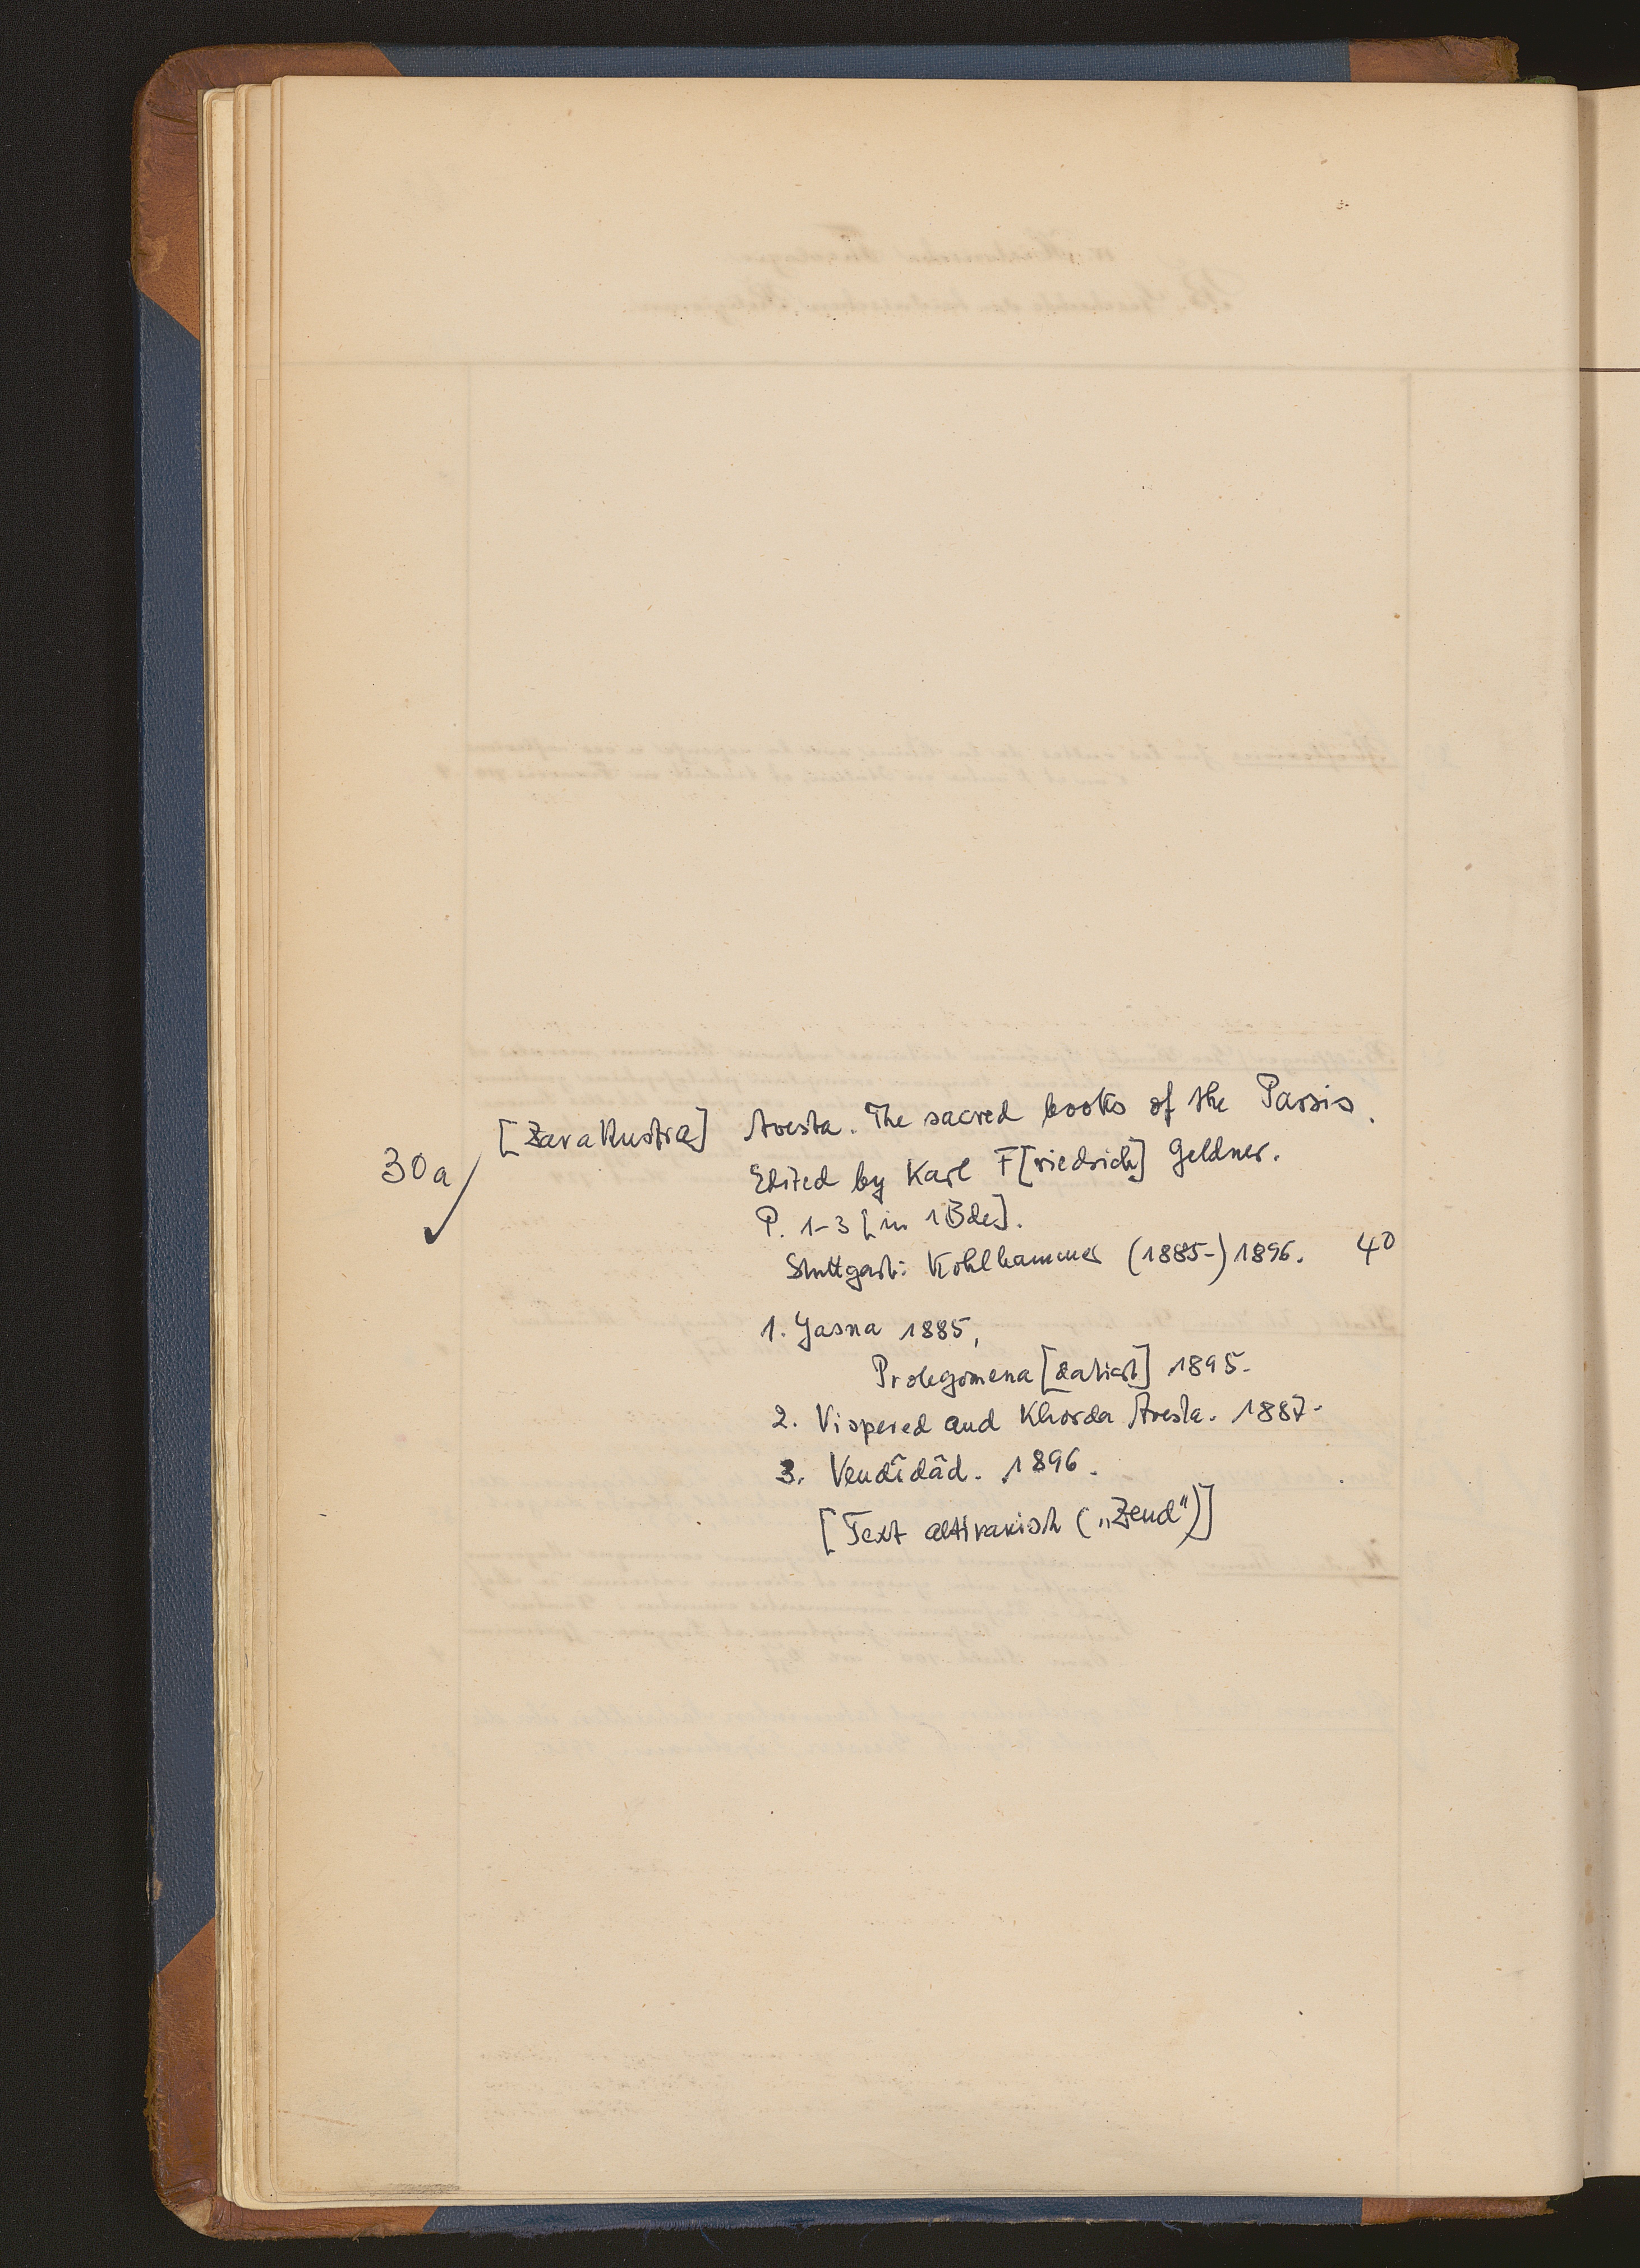 30a [Zarathustra] Avesta. The sacred books of the Parsis.
Edited by Karl F[riedrich] Geldner.
P. 1-3 [in 1 Bde].
Stuttgart: Kohlhammer (1885-) 1896. 4°
1. Yasna 1885,
Prolegomena [datiert] 1895.
2. Vispered and Khorda Avesta. 1887.
3. Vendîdâd. 1896.
[Text altiranisch („Zend")]